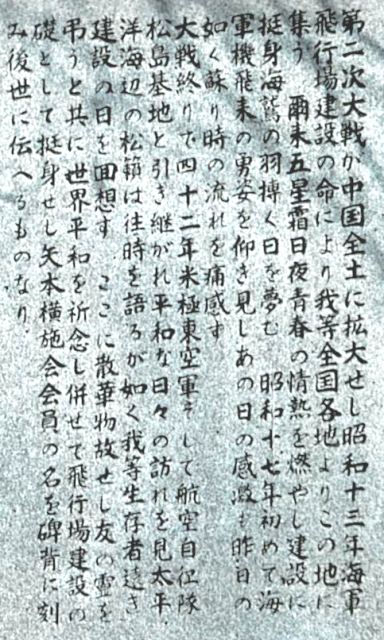 第二次大戦が中国全土に拡大せし昭和十三年海軍
飛行場建設の命により我等全国各地よりこの地に
集う　爾来五星霜日夜青春の情熱を燃やし建設に
挺身海鷲の羽搏く日を夢む　昭和十七年初めて海
軍機飛来の勇姿を仰き見しあの日の感激も昨日の
如く蘇り時の流れを痛感す
大戦終りて四十二年米極東空軍そして航空自征隊
松島基地と引き継がれ平和な日々の訪れを見太平
洋海辺の松籟は往時を語るが如く我等生存者遠き
建設の日を回想す　ここに散華物故せし友の霊を
弔うと共に世界平和を祈念し併せて飛行場建設の
礎として挺身せし矢本横施会会員の名を碑背に刻
み後世に伝へるものなり